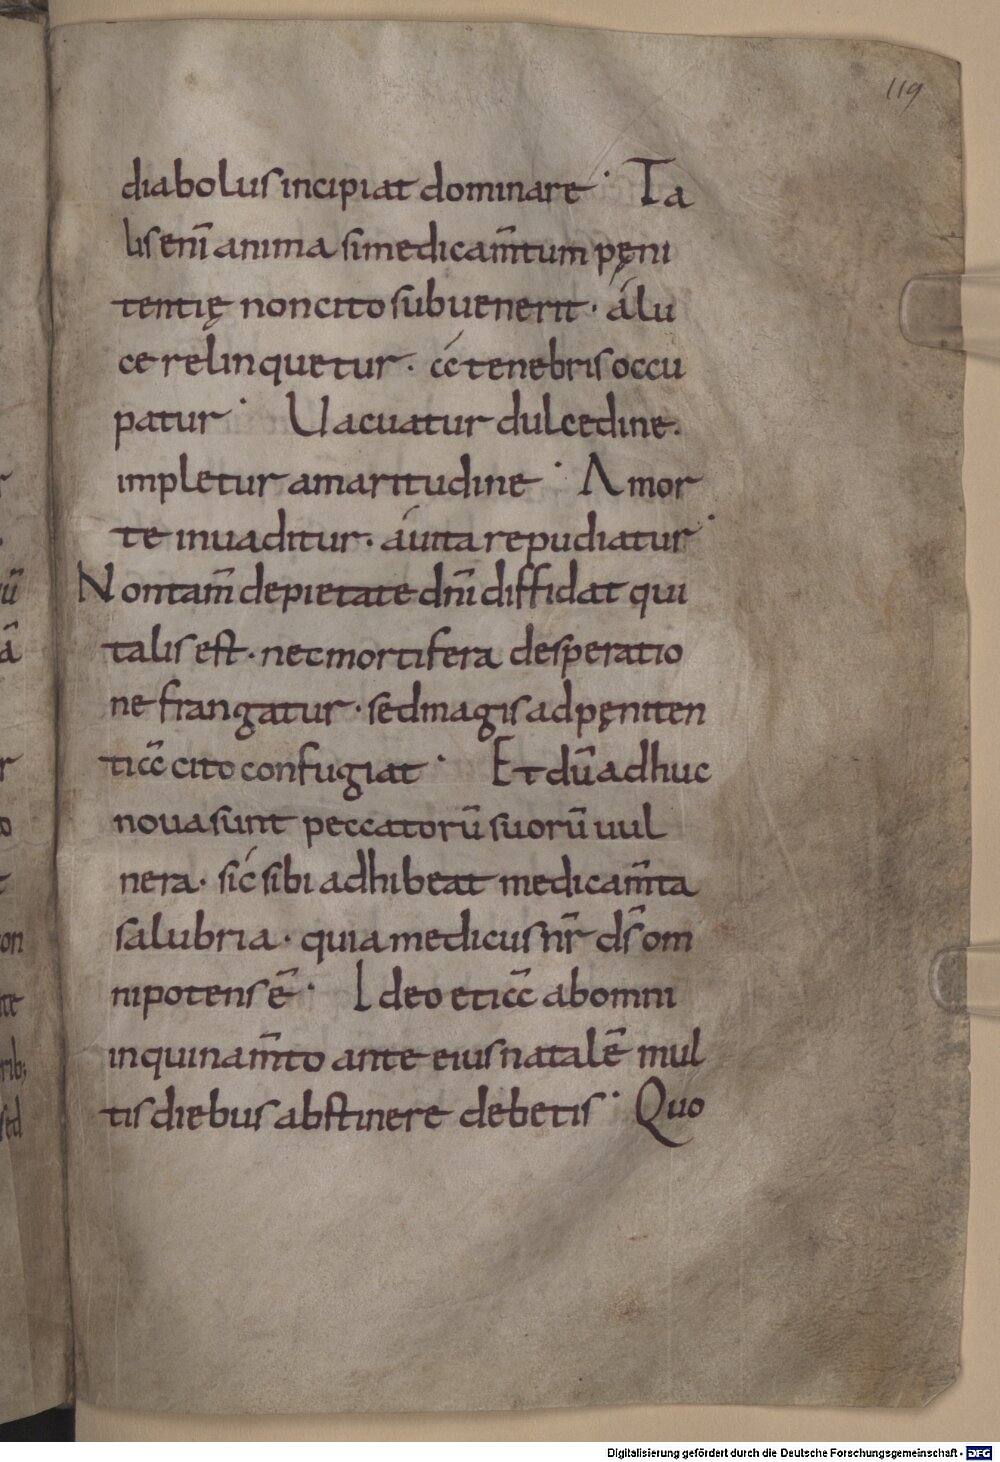 119
diabolus incipiat dominare· Ta
lis enī anima si medicam̄tum pęni
tentię non cito subuenerit· a lu
ce relinquetur· cc tenebris occu
patur· Uacuatur dulcedine·
impletur amaritudine· A mor
te inuaditur· a uita repudiatur·
Non tam̄ de pietate dn̄i diffidat qui
talis est· nec mortifera desperatio
ne frangatur· sed magis ad pęniten
ticc̄ cito confugiat· Et dū adhuc
noua sunt peccatorū suorū uul
nera· sic sibi adhibeat medicam̄ta
salubria· quia medicus nr̄ ds̄ om
nipotens ē· Ideo eticc̄ ab omni
inquinam̄to ante eius natalē mul
tis diebus abstinere debetis· Quo
Digitalisierung gefördert durch die Deutsche Forschungsgemeinschaft - DFG